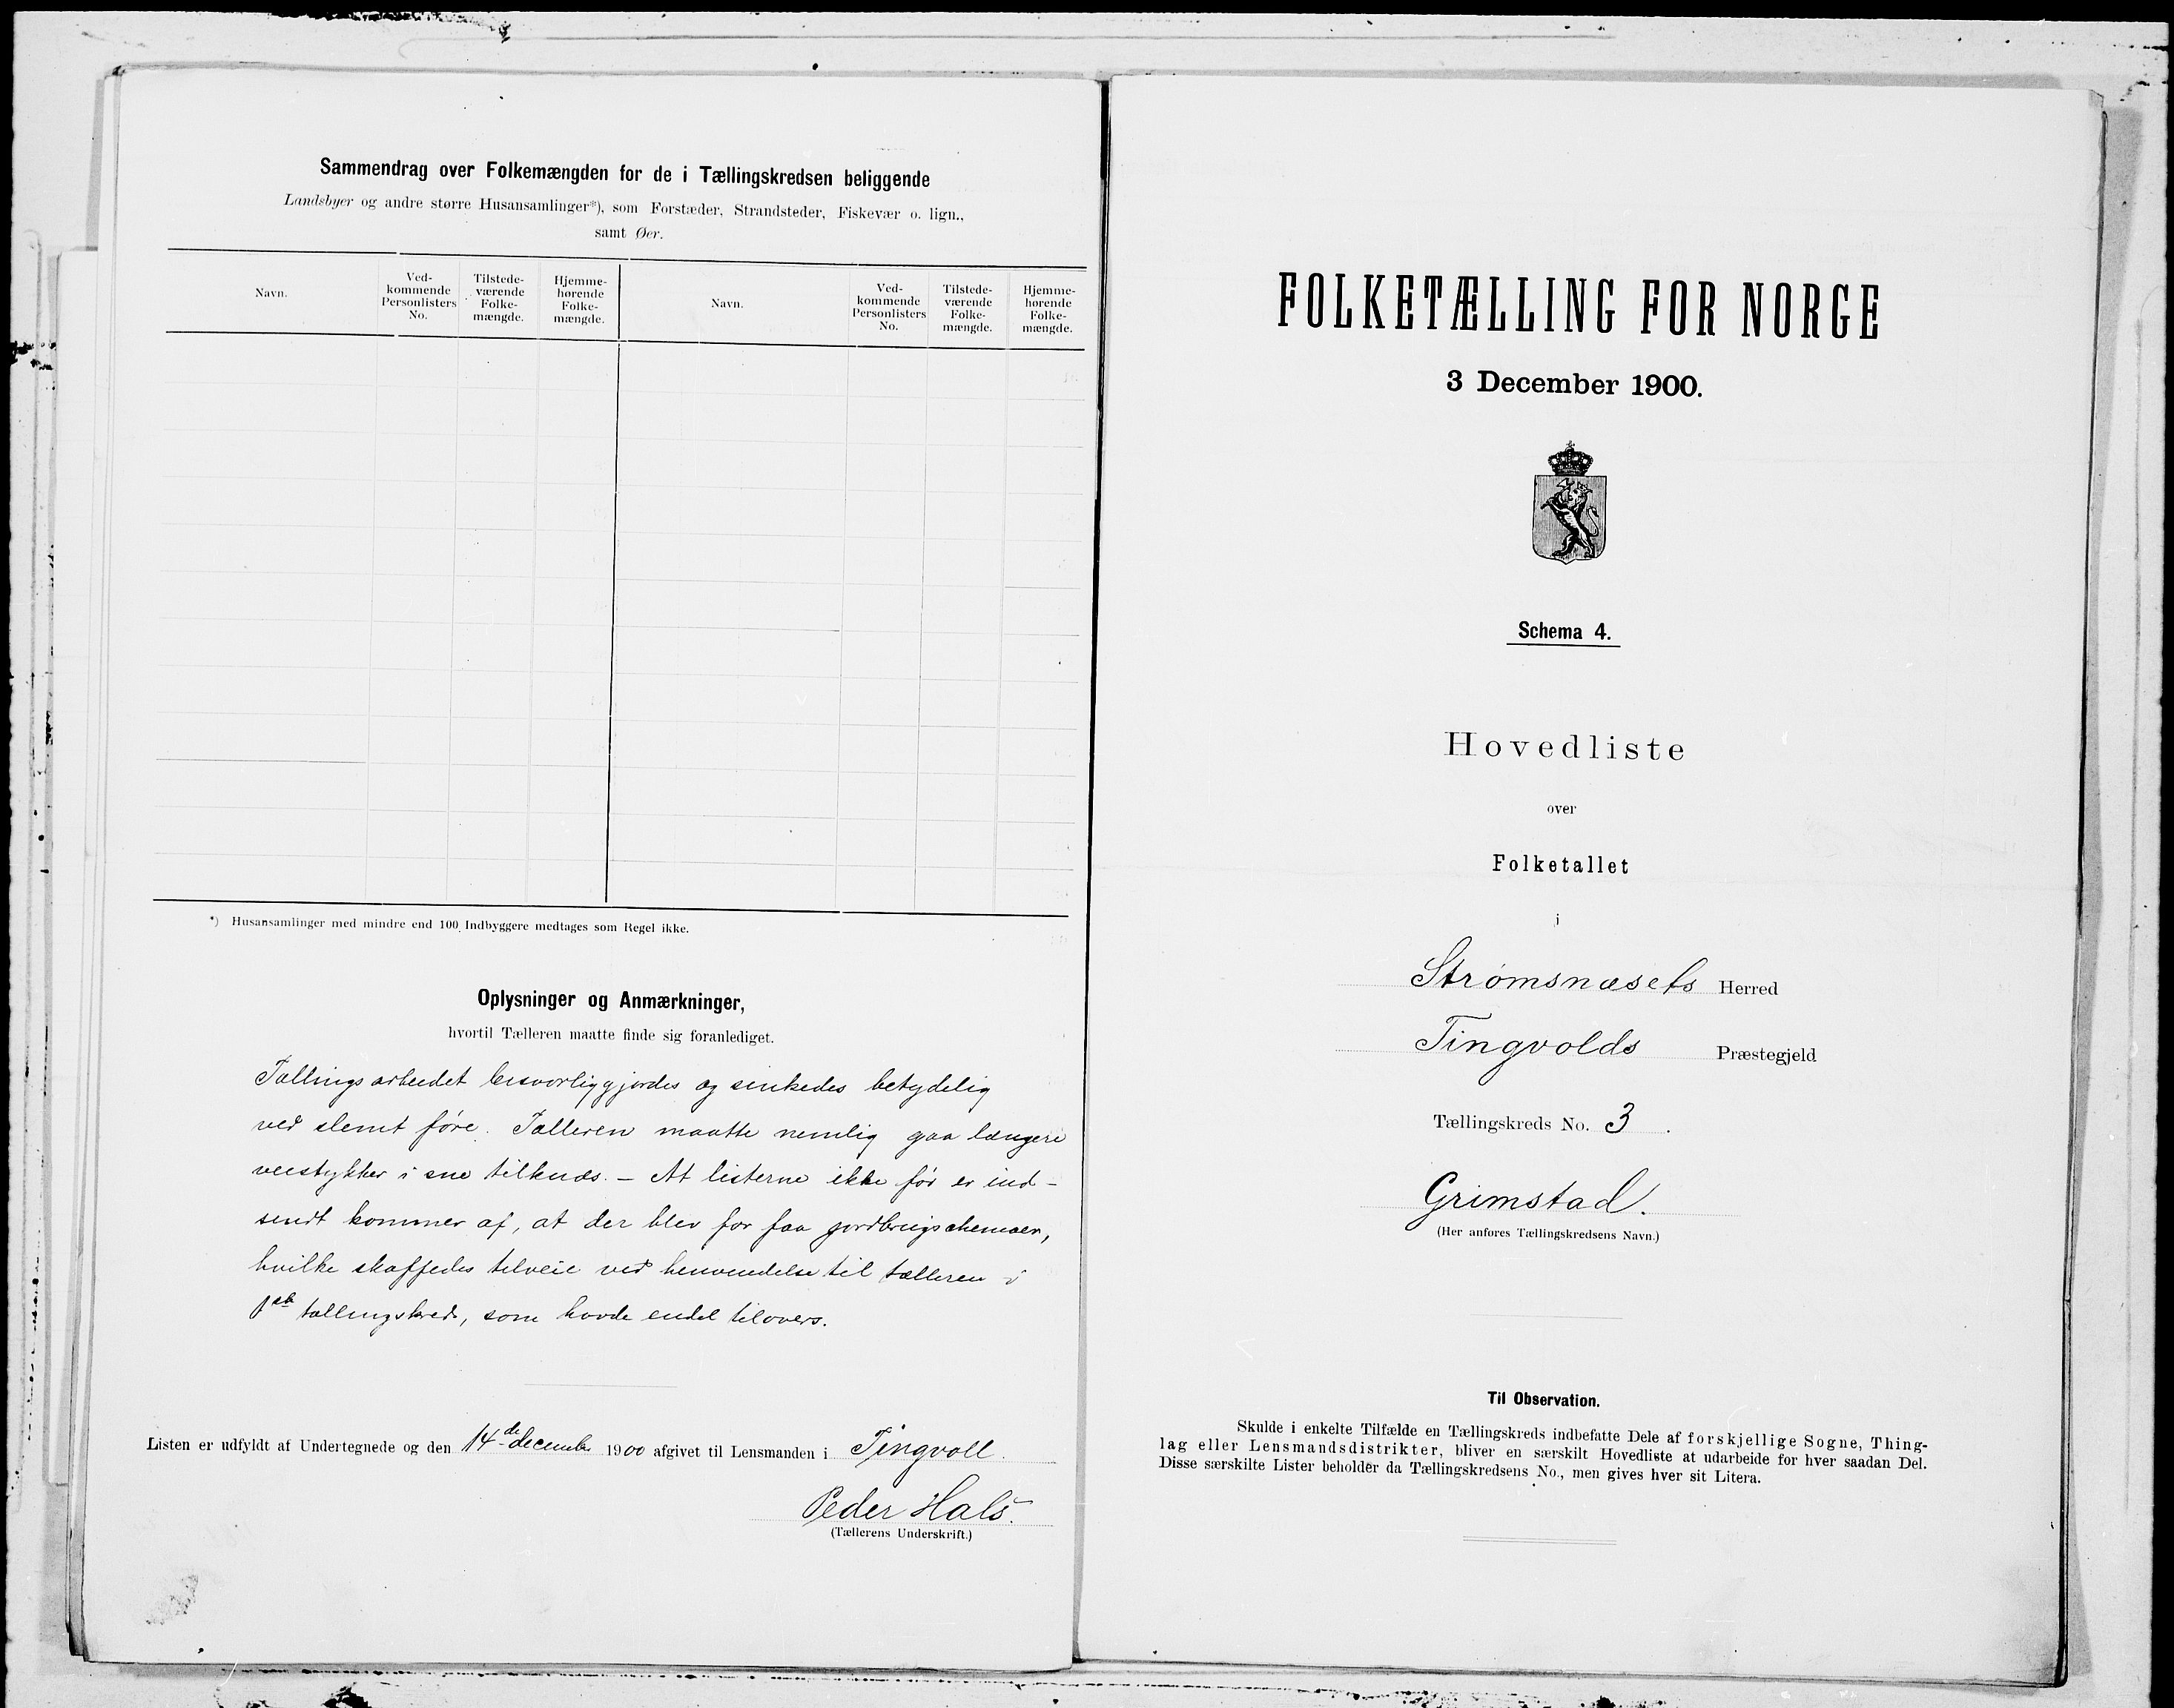 Sammendrag over Folkemængden for de i Tællingskredsen beliggende
Landsbyer og andre større Husansamlinger*), som Forstæder, Strandsteder, Fiskevær o. lign.,
samt Øer.
Navn.
Ved-
kommende
Personlisters
No.
Tilstede-
værende
Folke-
mængde.
Hjemme-
hørende
Folke-
mængde.
Navn.
Ved-
kommende
Personlisters
No.
Tilstede-
værende
Folke-
mængde.
Hjemme-
hørende
Folke-
mængde.
*) Husansamlinger med mindre end 100 Indbyggere medtages som Regel ikke.
Oplysninger og Anmærkninger,
hvortil Tælleren maatte finde sig foranlediget.
Tællingsarbeidet besværliggjordes og sinkedes betydelig
ved slemt føre. Tælleren maatte nemlig gaa længere
veistykker i sne tilknæs. – At listerne ikke før er ind-
sendt kommer af, at der blev for faa jordbrugschemaer,
hvilke skaffedes tilveie ved henvendelse til tælleren i
1ste tællingskreds, som havde endel tilovers.
Listen er udfyldt af Undertegnede og den 14de december 1900 afgivet til Lensmanden i Tingvoll.
Peder Hals.
(Tællerens Underskrift.)
FOLKETÆLLING FOR NORGE
3 December 1900.
Schema 4.
Hovedliste
over
Folketallet
i
Strømsnæsets Herred
Tingvolds Præstegjeld
Tællingskreds No. 3.
Grimstad.
(Her anføres Tællingskredsens Navn.)
Til Observation.
Skulde i enkelte Tilfælde en Tællingskreds indbefatte Dele af forskjellige Sogne, Thing-
lag eller Lensmandsdistrikter, bliver en særskilt Hovedliste at udarbeide for hver saadan Del.
Disse særskilte Lister beholder da Tællingskredsens No., men gives hver sit Litera.